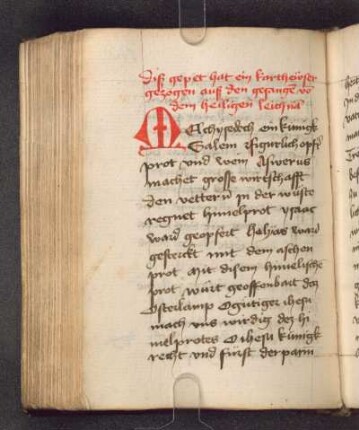 Diß gepet hat ein kartheuser
gezogen auß den gesange vō
dem heiligen leichnā
Melchysedech ein kúnigk
Salem figúrlich opfert
prot vnd wein Aswerus
machet grosse wirtschafft
den vettern jn der wúste
regnet himelprot ysaac
ward geopfert helyas ward
gesterckt mit dem aschen
prot Mit disem himelische
prot wúrt geoffenbart dez
Osterlamp O gútiger ihesu
mach vns wirdig dez hi
melprotes O ihesu kúnigk
recht vnd fúrst der parm